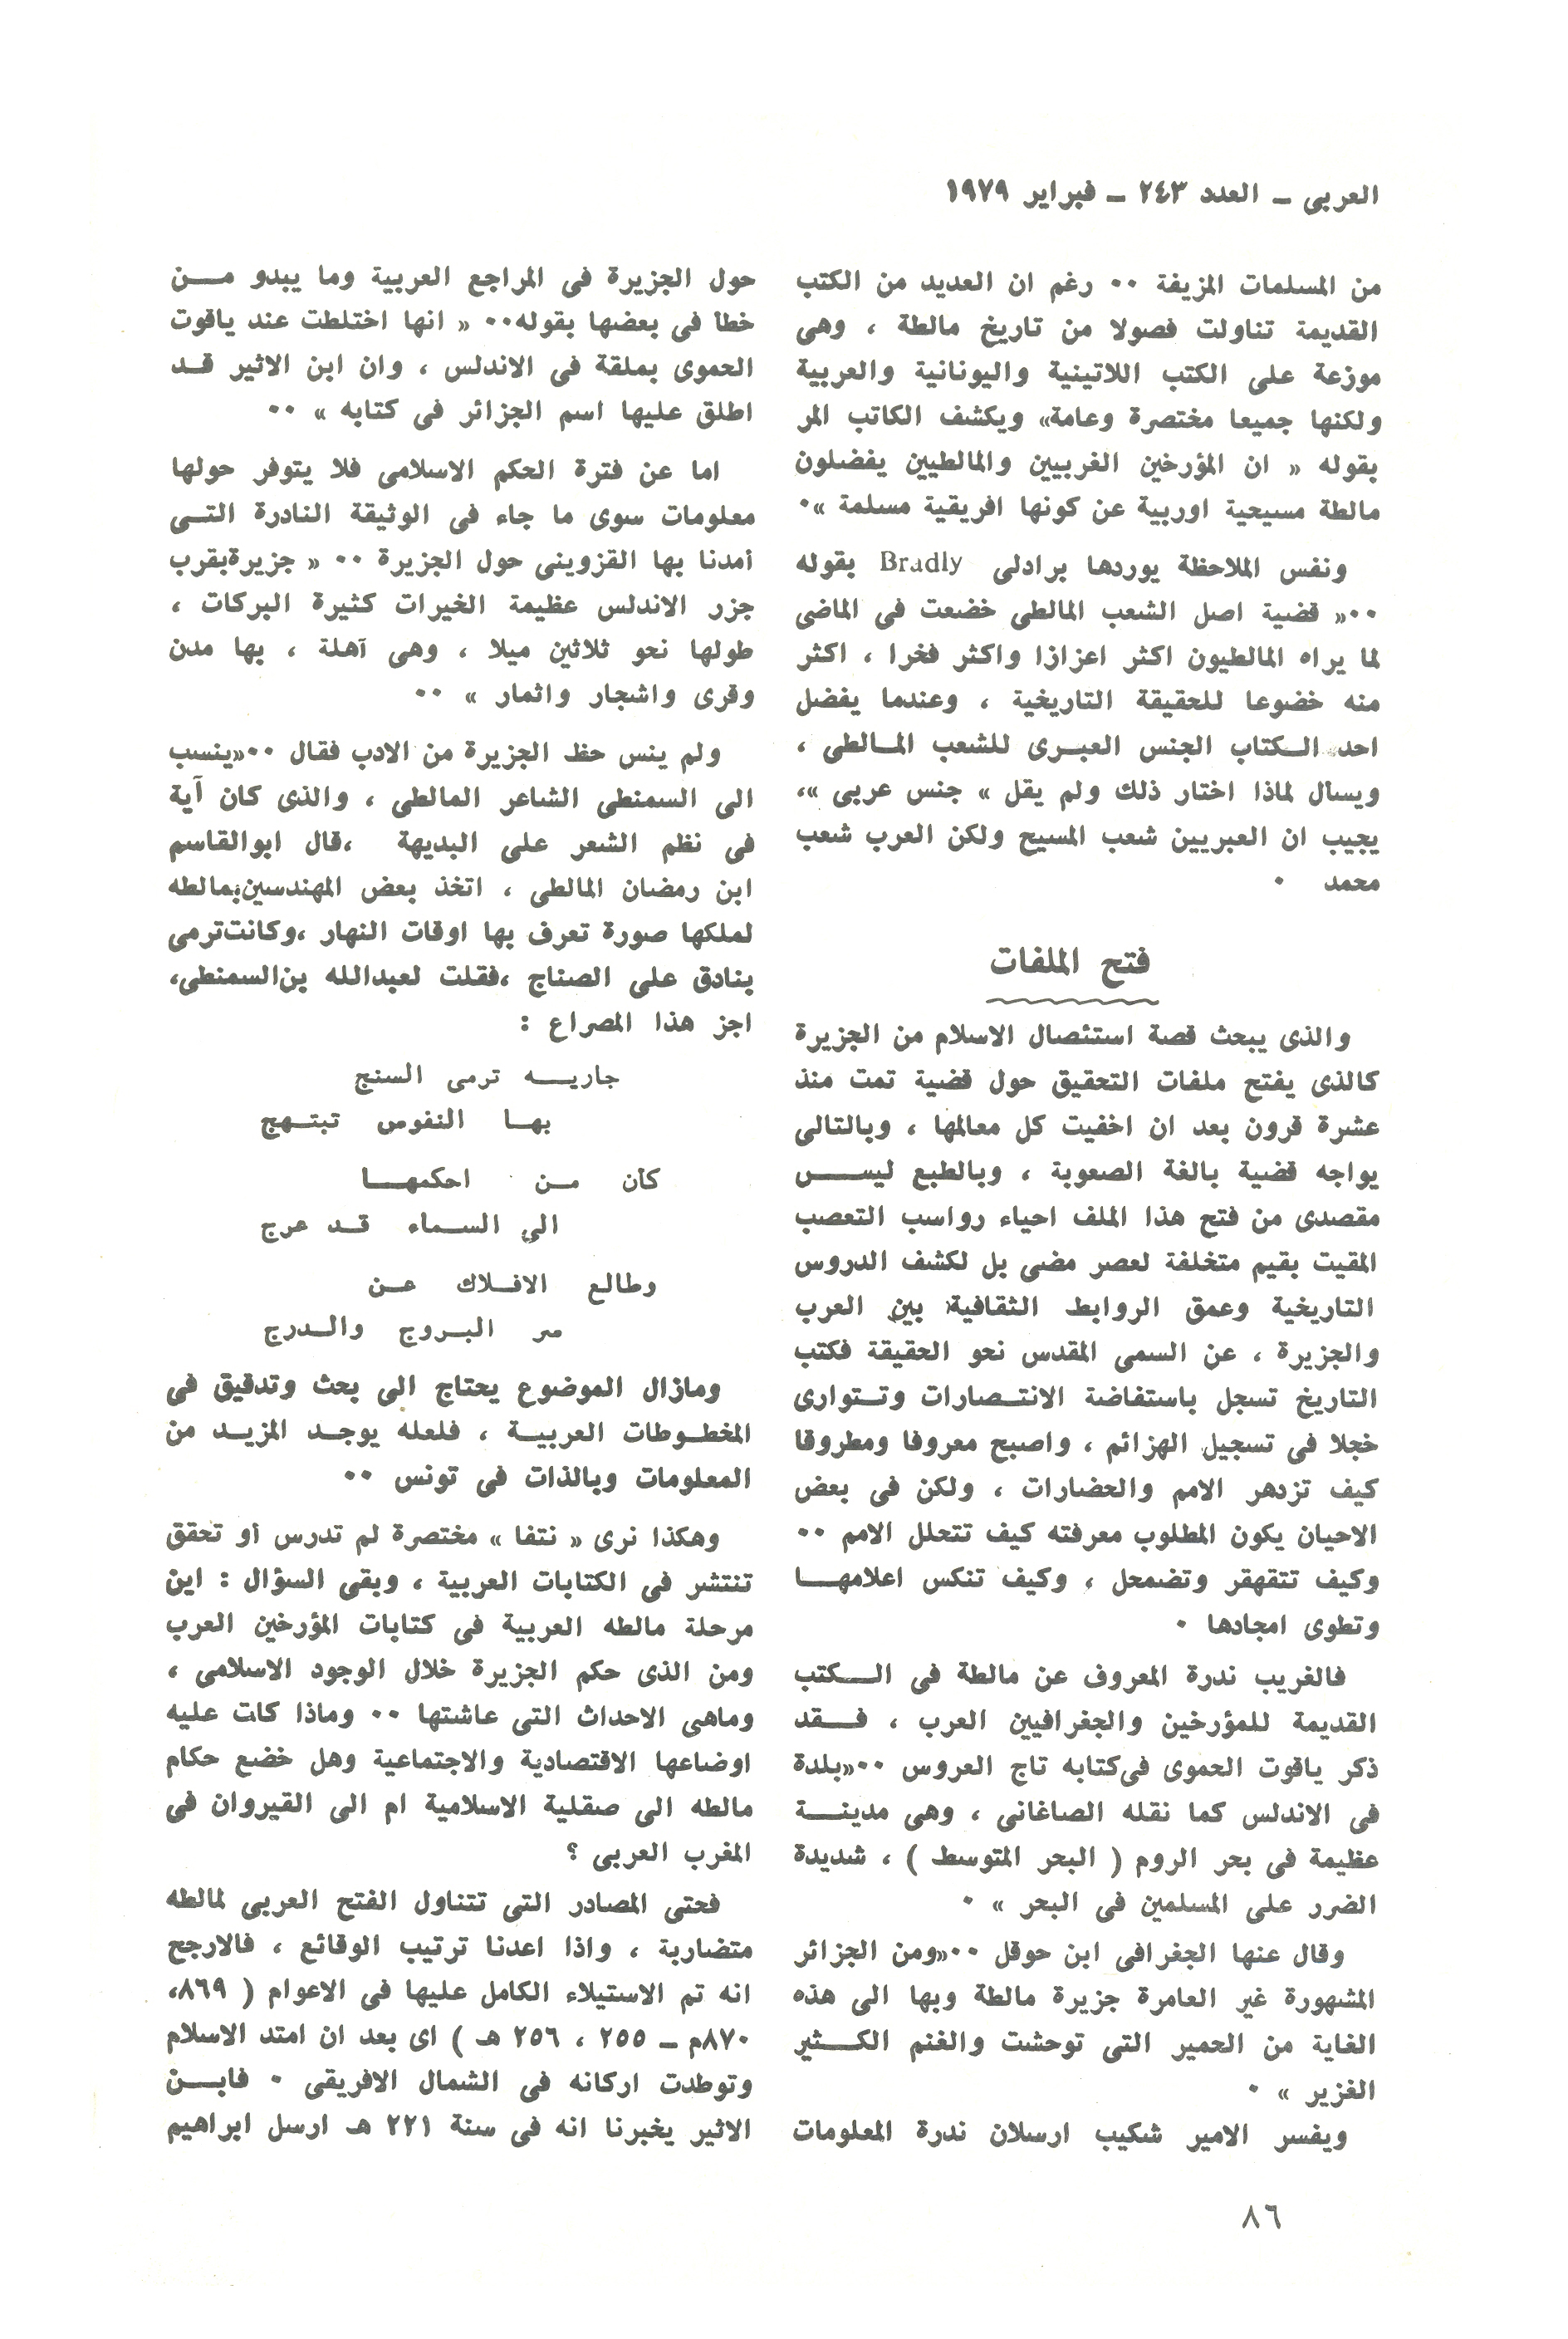 العربى ــ العدد ٢٤٣ ــ فبراير ١٩٧٩
من المسلمات المزيفة ٠٠ رغم ان العديد من الكتب
القديمة تناولت فصولا من تاريخ مالطة ، وهى
موزعة على الكتب اللاتينية واليونانية والعربية
ولكنها جميعا مختصرة وعامة» ويكشف الكاتب المر
بقوله « ان المؤرخين الغربيين والمالطيين يفضلون
مالطة مسيحية اوربية عن كونها افريقية مسلمة »٠
ونفس الملاحظة يوردها برادلى Bradly بقوله
٠٠« قضية اصل الشعب المالطى خضعت فى الماضى
لما يراه المالطيون اكثر اعزازا واكثر فخرا ، اكثر
منه خضوعا للحقيقة التاريخية ، وعندما يفضل
احد الـكتاب الجنس العبـرى للشعب المـالطى ،
ويسال لماذا اختار ذلك ولم يقل » جنس عربى »،
يجيب ان العبريين شعب المسيح ولكن العرب شعب
محمد ٠
فتح الملفات
والذى يبحث قصة استئصال الاسلام من الجزيرة
كالذى يفتح ملفات التحقيق حول قضية تمت منذ
عشرة قرون بعد ان اخفيت كل معالمها ، وبالتالى
يواجه قضية بالغة الصعوبة ، وبالطبع ليس
مقصدى من فتح هذا الملف احياء رواسب التعصب
المقيت بقيم متخلفة لعصر مضى بل لكشف الدروس
التاريخية وعمق الروابط الثقافية بين العرب
والجزيرة ، عن السمى المقدس نحو الحقيقة فكتب
التاريخ تسجل باستفاضة الانتـصارات وتـتوارى
خجلا فى تسجيل الهزائم ، واصبح معروفا ومطروقا
كيف تزدهر الامم والحضارات ، ولكن فى بعض
الاحيان يكون المطلوب معرفته كيف تتحلل الامم ٠٠
وكيف تتقهقر وتضمحل ، وكيف تنكس اعلامهـا
وتطوى امجادها ٠
فالغريب ندرة المعروف عن مالطة فى الـكتب
القديمة للمؤرخين والجغرافيين العرب ، فـقد
ذكر ياقوت الحموى فى كتابه تاج العروس ٠٠«بلدة
فى الاندلس كما نقله الصاغانى ، وهى مدينـة
عظيمة فى بحر الروم ( البحر المتوسط ) ، شديدة
الضرر على المسلمين فى البحر » ٠
وقال عنها الجغرافى ابن حوقل ٠٠«ومن الجزائر
المشهورة غير العامرة جزيرة مالطة وبها الى هذه
الغاية من الحمير التى توحشت والغنم الكـثير
الغزير » ٠
ويفسر الامير شكيب ارسلان ندرة المعلومات
حول الجزيرة فى المراجع العربية وما يبدو مـن
خطا فى بعضها بقوله٠٠ « انها اختلطت عند ياقوت
الحموى بملقة فى الاندلس ، وان ابن الاثير قـد
اطلق عليها اسم الجزائر فى كتابه » ٠٠
اما عن فترة الحكم الاسلامى فلا يتوفر حولها
معلومات سوى ما جاء فى الوثيقة النادرة التـى
أمدنا بها القزوينى حول الجزيرة ٠٠ « جزيرةبقرب
جزر الاندلس عظيمة الخيرات كثيرة البركات ،
طولها نحو ثلاثين ميلا ، وهى آهلة ، بها مدن
وقرى واشجار واثمار » ٠٠
ولم ينس حظ الجزيرة من الادب فقال ٠٠«ينسب
الى السمنطى الشاعر المالطى ، والذى كان آية
فى نظم الشعر على البديهة ،قال ابوالقاسم
ابن رمضان المالطى ، اتخذ بعض المهندسين بمالطه
لملكها صورة تعرف بها اوقات النهار ،وكانت ترمى
بنادق على الصناج ،فقلت لعبدالله بن السمنطى،
اجز هذا المصراع :
جاريـه ترمى السنج
بهـا النفوس تبتـهج
كأن مـن احكمهـا
الى السـماء قـد عرج
وطالع الافـلاك عـن
سر البـروج والـدرج
ومازال الموضوع يحتاج الى بحث وتدقيق فى
المخطـوطات العربيـة ، فلعله يوجـد المزيـد من
المعلومات وبالذات فى تونس ٠٠
وهكذا نرى « نتفا » مختصرة لم تدرس أو تحقق
تنتشر فى الكتابات العربية ، وبقى السؤال : اين
مرحلة مالطه العربية فى كتابات المؤرخين العرب
ومن الذى حكم الجزيرة خلال الوجود الاسلامى ،
وماهى الاحداث التى عاشتها ٠٠ وماذا كات عليه
اوضاعها الاقتصادية والاجتماعية وهل خضع حكام
مالطه الى صقلية الاسلامية ام الى القيروان فى
المغرب العربى ؟
فحتى المصادر التى تتناول الفتح العربى لمالطه
متضاربة ، واذا اعدنا ترتيب الوقائع ، فالارجح
انه تم الاستيلاء الكامل عليها فى الاعوام ( ٨٦٩،
٨٧٠م ــ ٢٥٥ ، ٢٥٦ هـ ) اى بعد ان امتد الاسلام
وتوطدت اركانه فى الشمال الافريقى ٠ فابـن
الاثير يخبرنا انه فى سنة ٢٢١ هـ ارسل ابراهيم
٨٦